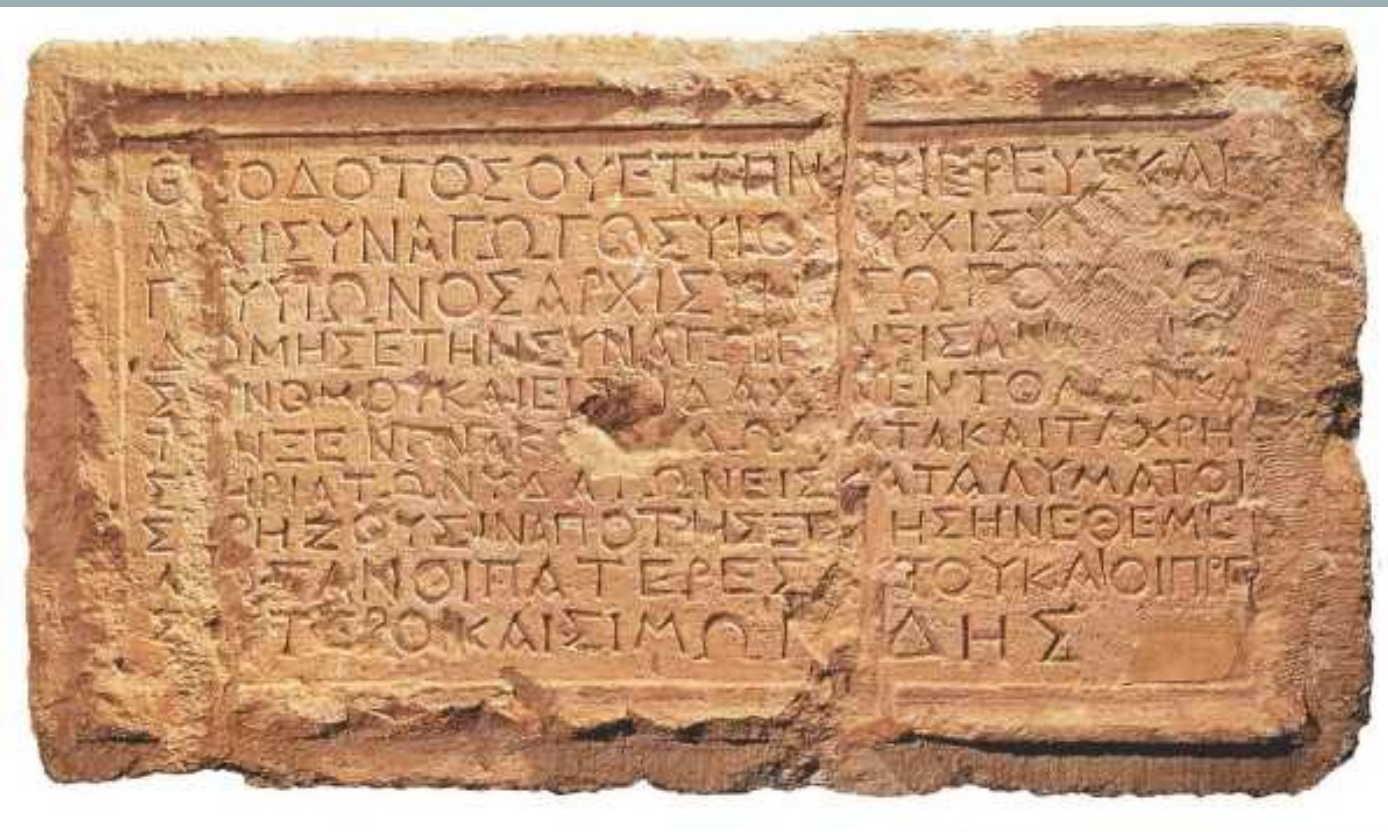 ΘΕΟΔΟΤΟΣΟΥΕΤΤΗΝ ΙΕΡΕΥΣΚΑΙ
ΑΡΧΙΣΥΝΑΓΩΓΟΣΥΙΟΣ ΑΡΧΙΣΥ
Γ ΥΥΙΩΝΟΣΑΡΧΙΣΥΝ ΓΩΓΟΥ Ο
Δ ΟΜΗΣΕΤΗΝΣΥΝΑΓΩΓΗΝΕΙΣΑΝ
Σ ΝΟΜΟΥΚΑΙΕΙΣ ΙΔΑΧ ΝΕΝΤΟΛΩΝΚΑΙ
Τ ΝΞΕΝΩΝΑΚ ΔΩΜΑΤΑΚΑΙΤΑΧΡΗ
Σ ΗΡΙΑΤΩΝΥΔΑΤΩΝΕΙΣΚΑΤΑΛΥΜΑΤΟΙ
Σ ΡΗΖΟΥΣΙΝΑΠΟΤΗΣΞΕ ΗΣΗΝΕΘΕΜΕ
Λ ΣΑΝΟΙΠΑΤΕΡΕΣΑ ΤΟΥΚΑΙΟΙΠΡΕ
Σ ΤΕΡΟΙΚΑΙΣΙΜΩΝ ΔΗΣ